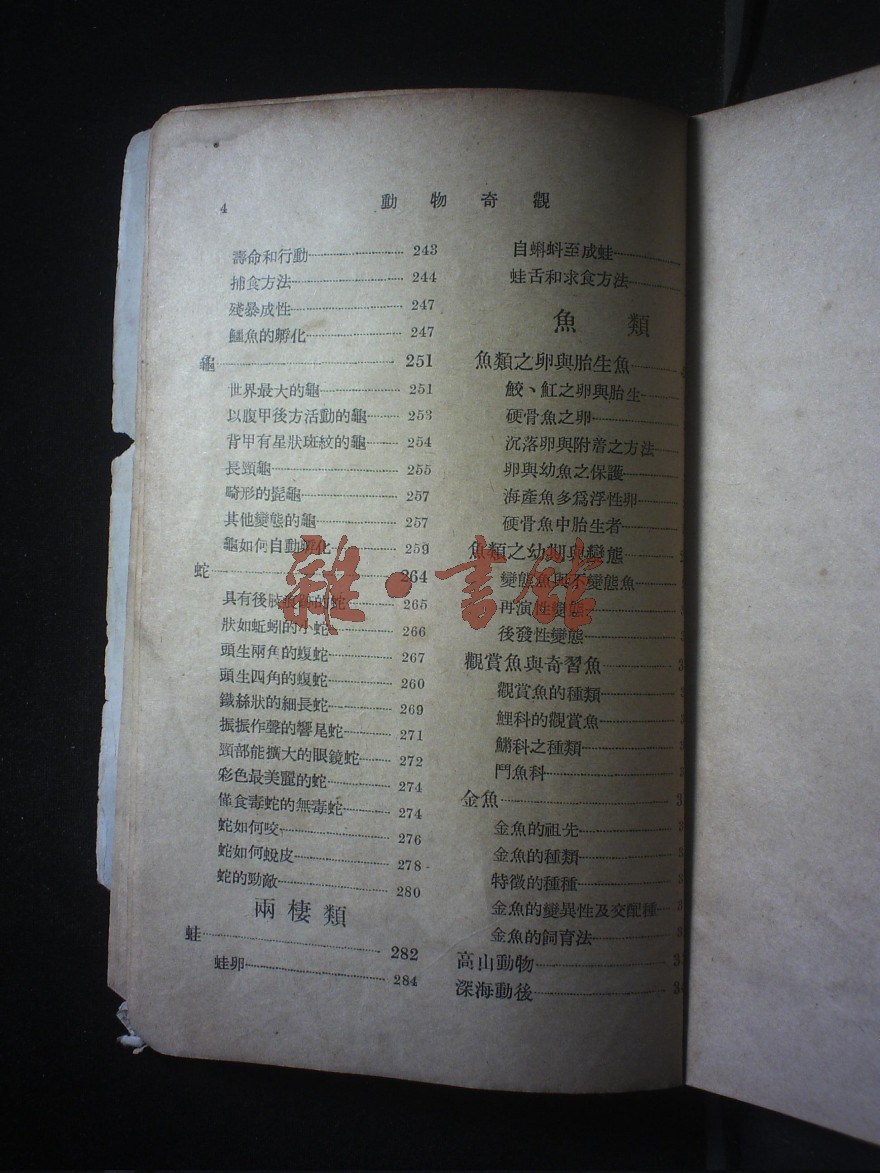 4
動物奇觀
壽命和行動 243
捕食方法 244
殘暴成性 247
鱷魚的孵化 247
龜 251
世界最大的龜 251
以腹甲後方活動的龜 253
背甲有星狀斑紋的龜 254
長頸龜 255
畸形的髭龜 257
其他變態的龜 257
龜如何自動孵化 259
蛇 264
具有後肢痕跡的蛇 265
狀如蚯蚓的小蛇 266
頭生兩角的蝮蛇 267
頭生四角的蝮蛇 260
鐵絲狀的細長蛇 269
振振作聲的響尾蛇 271
頸部能擴大的眼鏡蛇 272
彩色最美麗的蛇 274
僅食毒蛇的無毒蛇 274
蛇如何咬 276
蛇如何蛻皮 278
蛇的勁敵 280
兩棲類
蛙 282
蛙卵 284
自蝌蚪至成蛙
蛙舌和求食方法
魚類
魚類之卵與胎生魚
鮫、魟之卵與胎生
硬骨魚之卵
沉落卵與附着之方法
卵與幼魚之保護
海產魚多爲浮性卵
硬骨魚中胎生者
魚類之幼期與變態
變態魚與不變態魚
再演性變態
後發性變態
觀賞魚與奇習魚
觀賞魚的種類
鯉科的觀賞魚
鱂科之種類
鬥魚科
金魚
金魚的祖先
金魚的種類
特徵的種種
金魚的變異性及交配種
金魚的飼育法
高山動物
深海動後
雜·書館